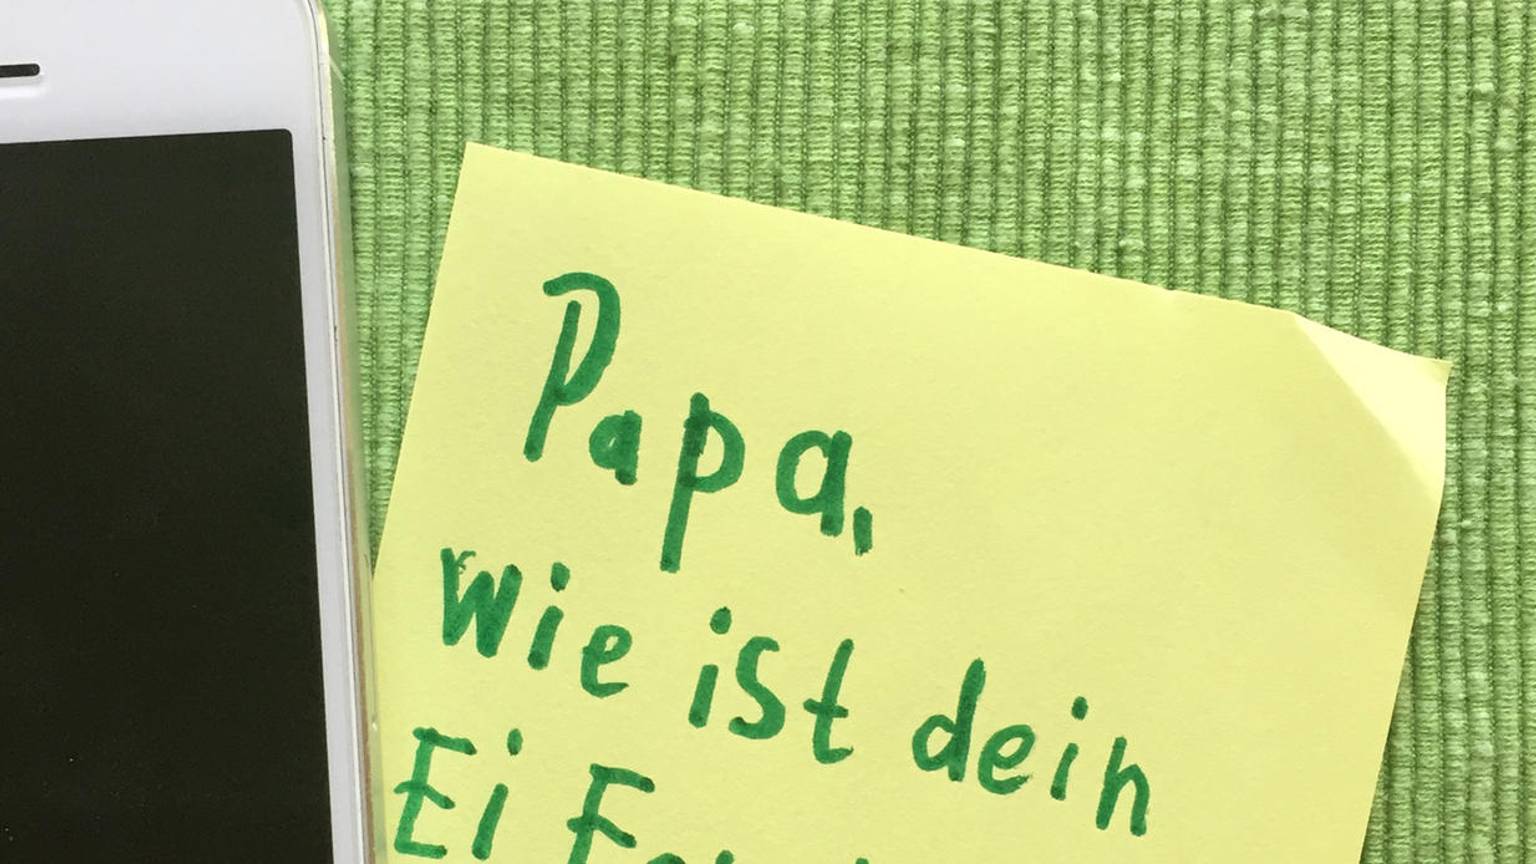 Papa,
wie ist dein
Ei